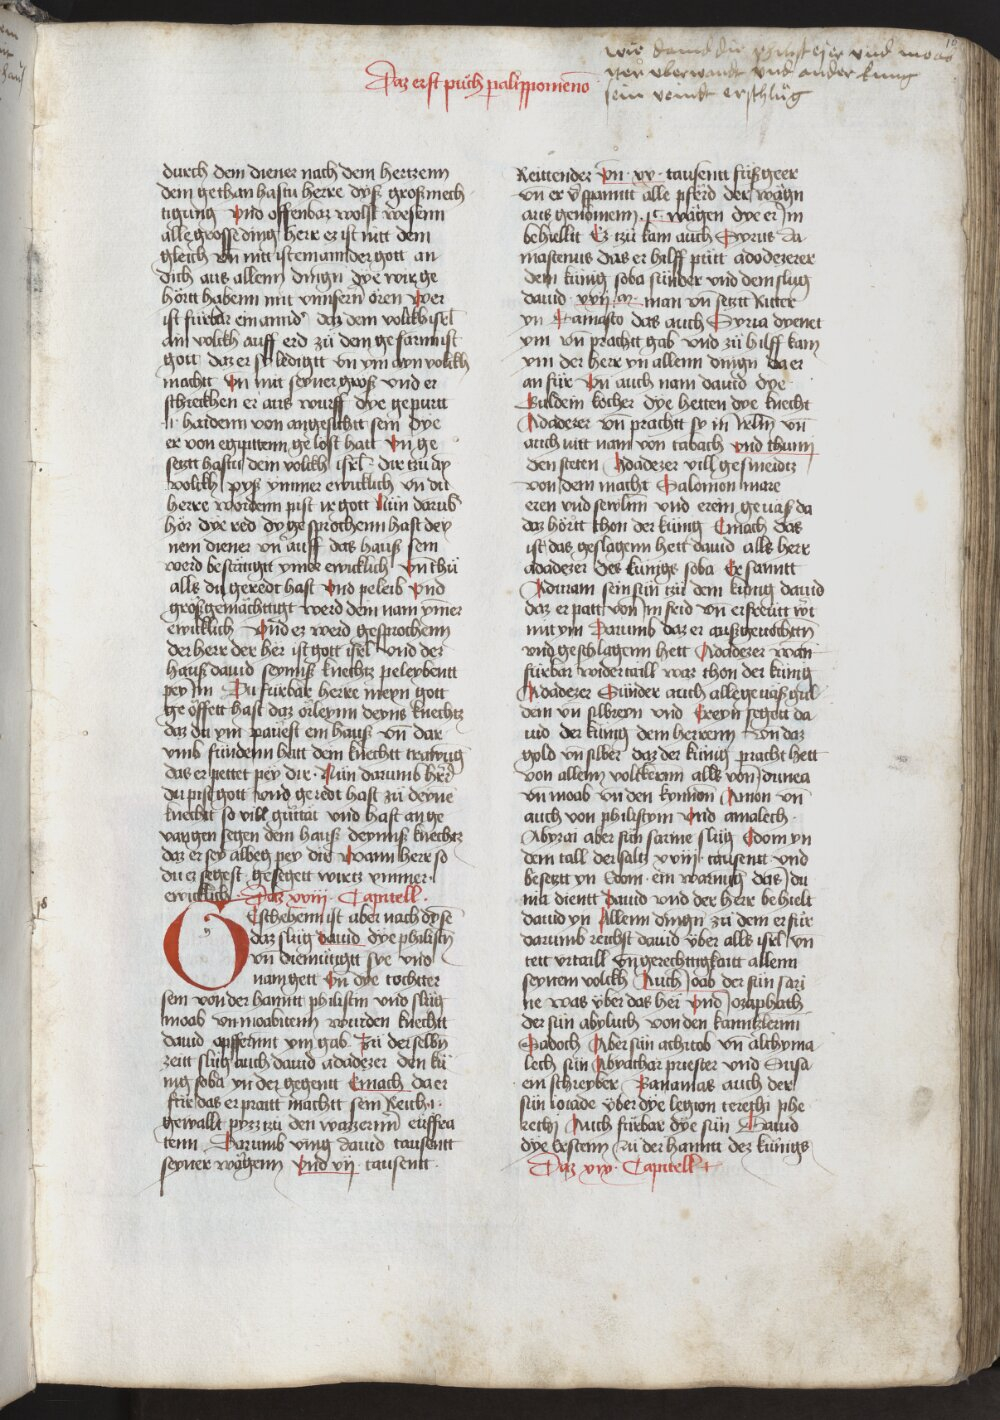 Daz erst puͤch paralippomenon
wie dauid die philistejer vnd moab
iter vberwandt vnd ander kunig
sein veindt erschlug
durch dem diener nach dem hertzenn
dem gethan hastu herre dyß groß mech
tigung Vnd offenbar wolst wesenn
alle grosse ding herr ez ist nitt dem
gleich vn nitt ist emannder gott an
dich aus allenn dingn dye wir ge
hörtt habenn mit vnnsern ören Wer
ist fürbar ein annd' daz dem volckh isrl
ain volckh auff erd zü dem gefarnn ist
gott daz er sy ledigtt vn ym ayn volckh
machtt Vn mit seyner groß vnd er
schrekhen er aus wurff dye gepurtt
haidenn von angesichtt sein dye
er von egipttenn gelost hatt Vn ge
setzt hastu dem volckh isrl dir tzü ay
volckh pyß ymmer ewicklich vn du
herre wordenn pist ir gott Nün darüb
hör dye red dy gesprochenn hast dey
nem diener vn auff das hauß sein
werd bestättigtt ymer ewicklich Vn thü
alls du geredt hast Vnd peleib Vnd
großgemächttigt werd dein nam ymer
ewicklich Vnd ez werd gesprochenn
der herre der her ist gott isrl vnd der
hauß dauid seynnß knechtz peleybentt
pey Jm Du fürbar herre meyn gott
geöffett hast daz örleynn deyns knechtz
daz du ym pauest ein hauß vn dar
vmb fündenn hatt dein knechtt trawüg
das er pettet pey dir Nün darumb herr
du pist gott vnd geredt hast zü deyne
knechtt so vill güttät vnd hast ange
vangen segen dem hauß deynnß knechtz
daz er sey albeg pey dir Wann herr so
du ez segest gesegett wirtz ymmer
ewicklich Daz xviij Capitell
Geschehenn ist aber nach dyse
daz slüg dauid dye philistyn
vn diemüttigtt sye vnd
nam gett Vn dye tochtter
sein von der hanntt philistin vnd slüg
moab vn moabitenn wurden knechtt
dauid opffernnt ym gab Zü derselbn
zeitt slüg auch dauid adadezer den kü
nig soba yn der gegentt Emach da er
für das er praitt machtt sein Reich
gewallt pyzz tzü den wazzerinn euffra
tenn Darumb ving dauid tausentt
seyner wägenn Vnd vij tausentt
Reittender Vn xx tausentt füßgeer
vn er v'spanntt alle pferd der wägn
aus genomenn jc wägen dye er Jm
behielltt Ez tzü kam auch Syrus da
mascenus das er hilff pütt adodezerer
dem künig soba sünder vnd dem slug
dauid xxij m man vn setztt Ritter
yn Damasco das auch Syria dyenet
ym vn prachtt gab vnd zü hilff kam
ym der herr yn allenn dingn da er
an für Vn auch nam dauid dye
Guldein kocher dye hetten dye knecht
Adadezer vn prachtt sy in irlm vn
auch mitt nam von tabach vnd thum
den steten Adadezer vill gesmeidtz
von dem macht Salomon mare
eren vnd sewlnn vnd erein geväß da
daz hörtt thon der künig Emach das
ist das geslagenn hett dauid alls herr
adadezer des künigs soba Er sanntt
Aduram sein sün tzü dem künig dauid
daz er patt von jm frid vn erfreutt wt
mit ym Darumb daz er außgerochtn
vnd geschlagenn hett Adadezer wan
fürbar widertaill waz thon der künig
Adadezer Sünder auch alle geuäß gül
dein vn silbreyn vnd Ereyn segott da
uid der künig dem herrenn vn daz
gold vn silber daz der künig pracht hett
von allenn volckernn alls von idumea
vn moab vn den kynnon Amon vn
auch von philistym Vnd amalech
Abyzai aber sün saruie slüg Edom yn
dem tall der saltz xviij tausentt vnd
besetztt yn Edom ein warnüg das du
nit dientt dauid vnd der herr behielt
dauid yn Allenn dingn zü dem er für
darumb reichst dauid über alls isrl vn
tett vrtaill vn gerechttigkaitt allem
seynem volckh Auch Joab der sün sari
ne was über das her Vnd Jozaphath
der sün abyluth von den kanntzlernn
Sadoch Aber sün achitob vn alchyma
lech sün Abyathar priester vnd Susa
ein schreyber Bananias auch der
sün ioiade über dye legion cerethi phe
lechi Auch fürbar dye sün Dauid
dye erstenn zü der hanntt dez künigs
Daz xix Capitell